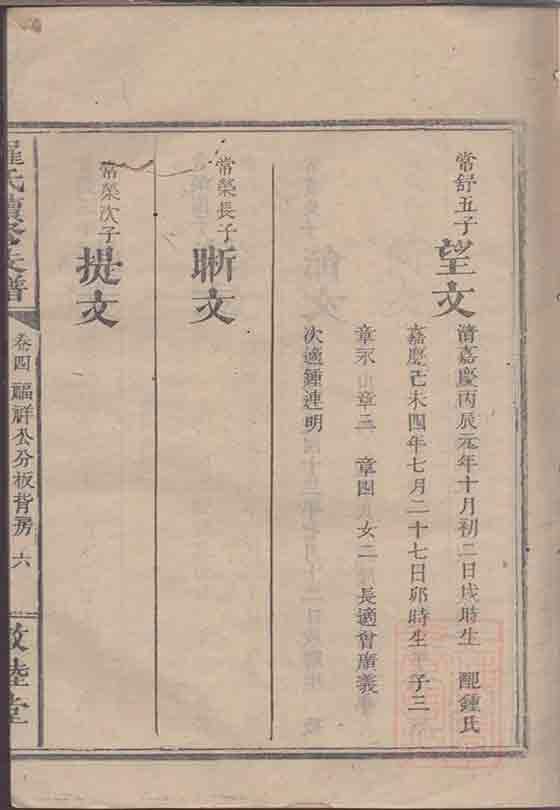 常舒五子
望文
清嘉慶丙辰元年十月初二日戌時生 配鍾氏
嘉慶己未四年七月二十七日卯時生 子三
章永 章三 章四 女二 長適曾廣義
次適鍾連明
常榮長子
晰文
常榮次子
提文
羅氏續修族譜
卷四 福祥公分板背房 六
敦睦堂